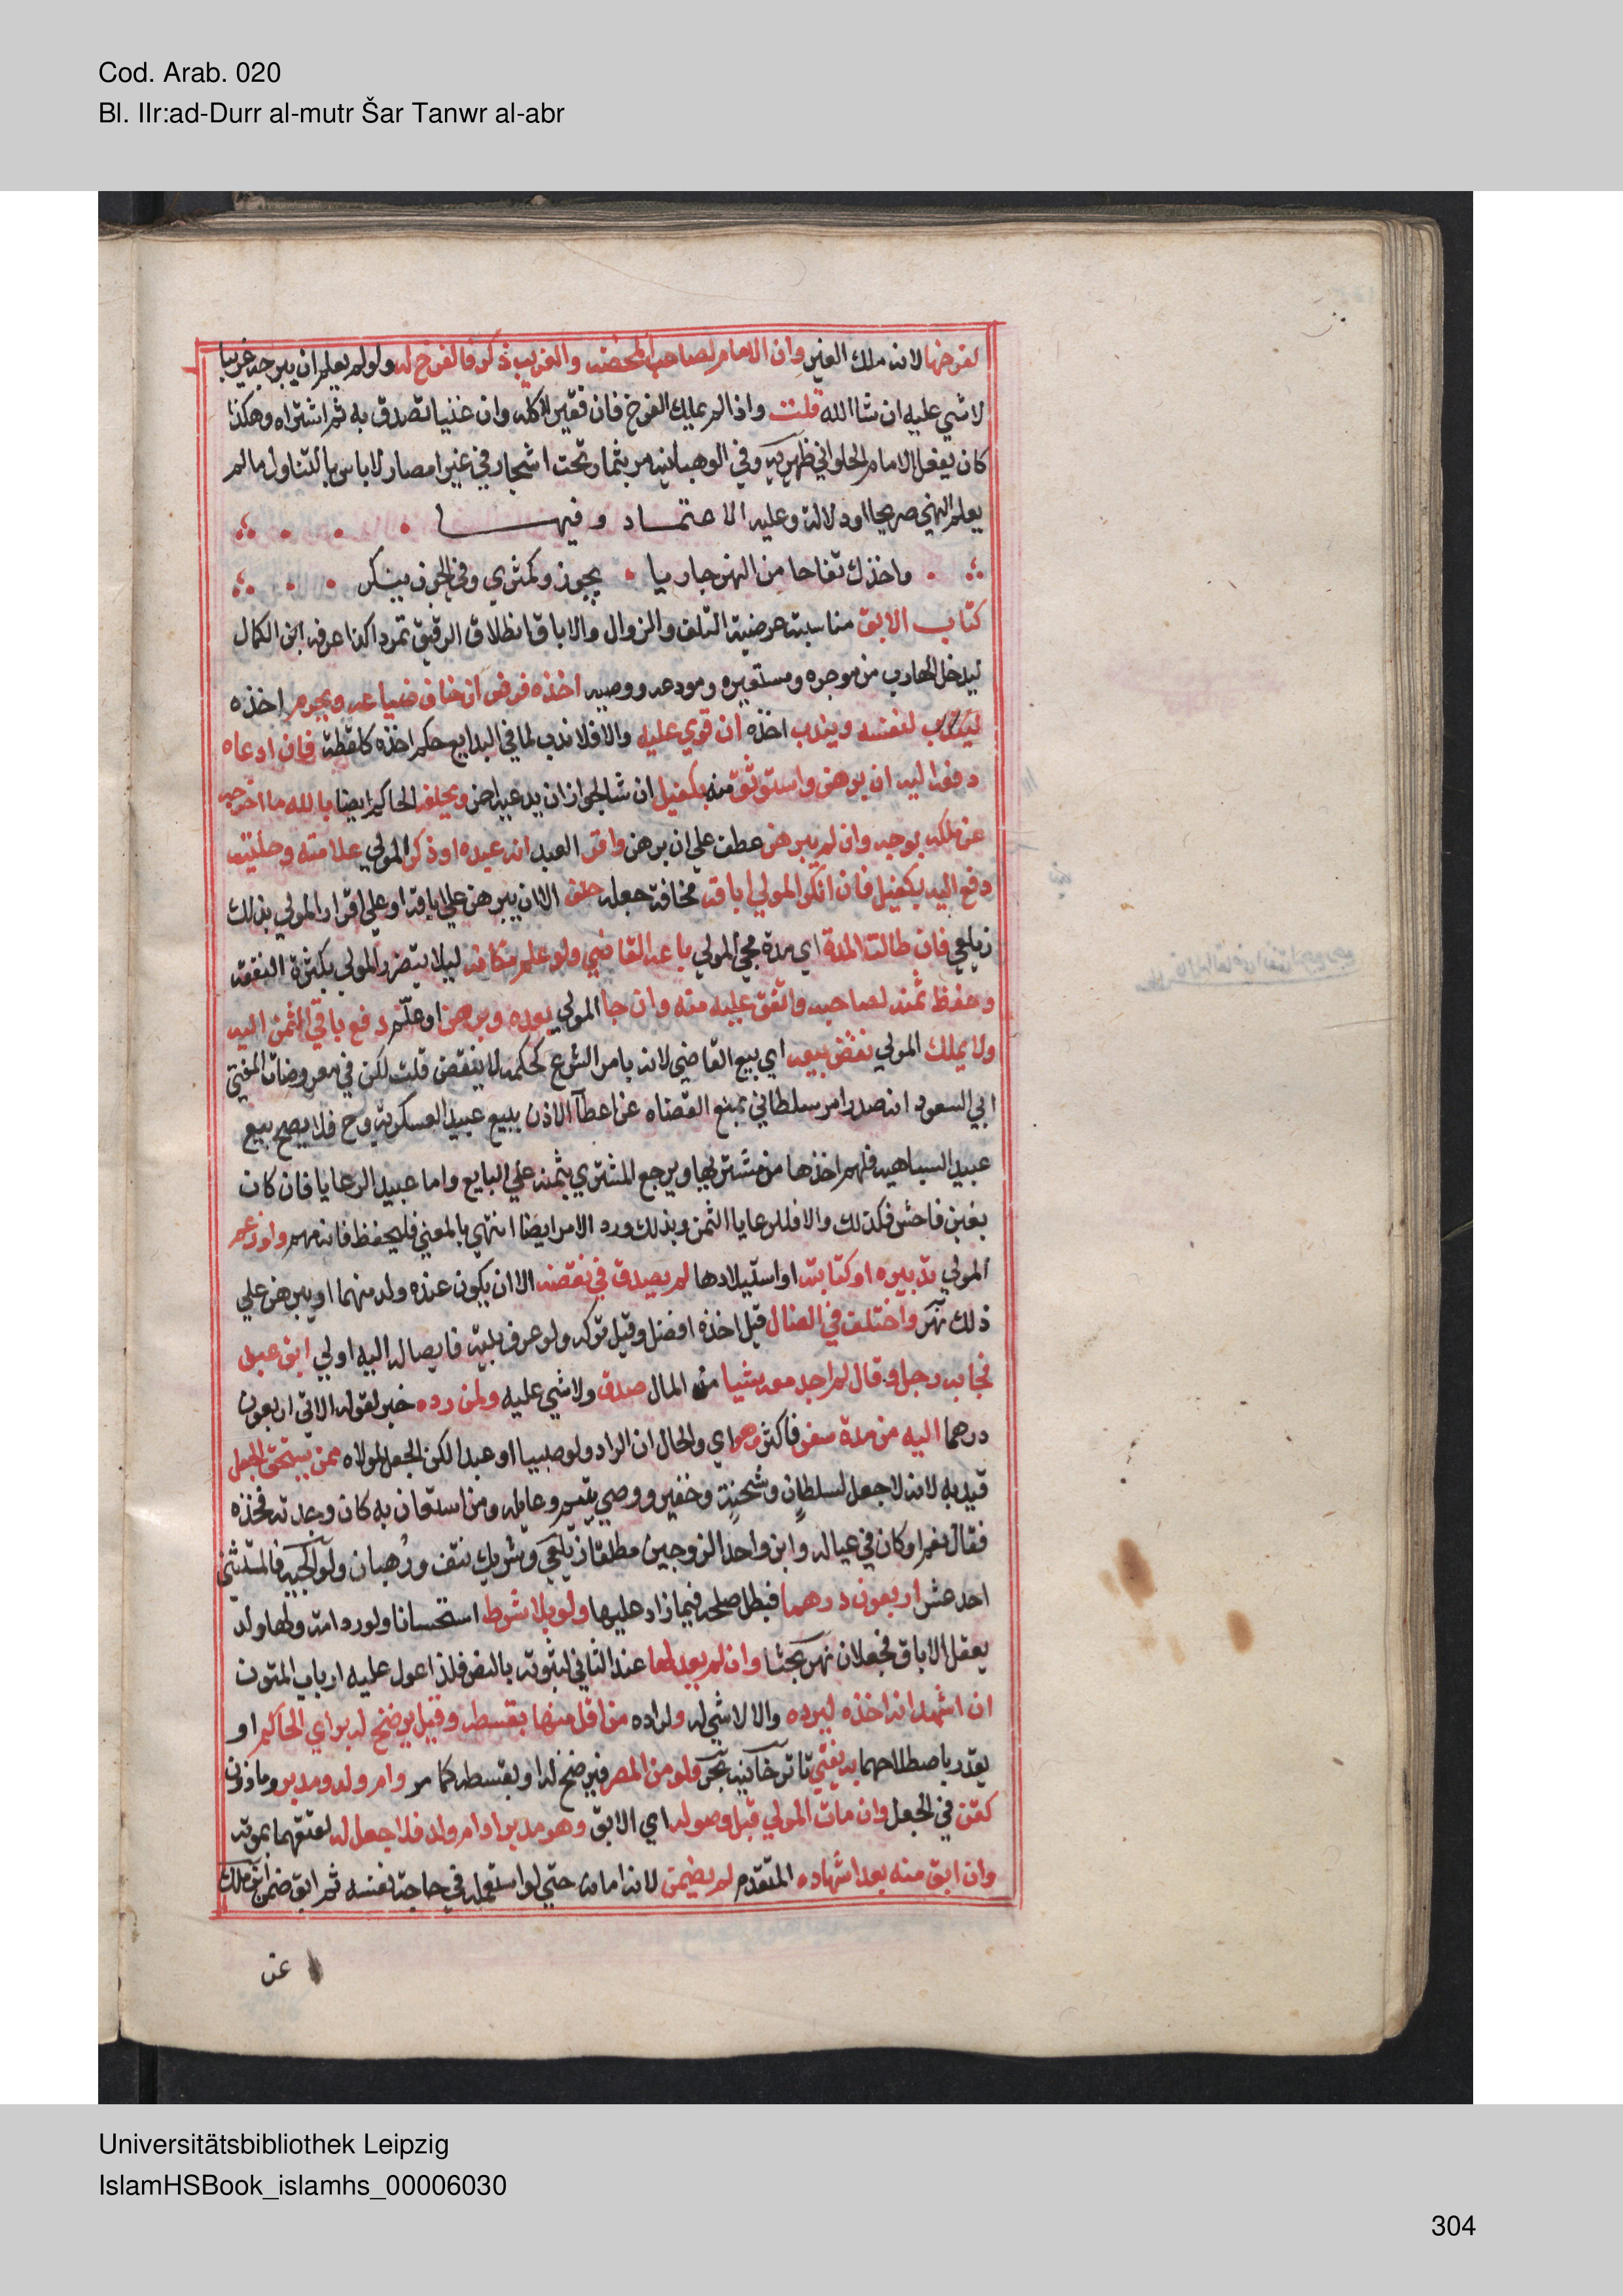 Cod. Arab. 020
Bl. IIr:ad-Durr al-mutr Šar Tanwr al-abr
لفرخها لانه ملك الغير وان الام لصاحب المحضنه والغريب ذكر فالفرخ له ولو لم يعلم ان ببرجه غريبا
لاشي عليه ان شا الله قلت واذا لم يملك الفرخ فان فقير اكله وان غنيا تصدق به ثم اشتراه وهكذا
كان يفعل الامام الحلواني ظهيريه وفي الوهبانيه مر بثمار تحت اشجار في غير امصار لاباس بالتناول مالم
يعلم النهي صريحا او دلالة وعليه الاعتماد وفيها
واخذك تفاحا من النهر جاريا يجوز وكمثري وفي الجوز ينكر
كتاب الابق مناسبته عرضية التلف والزوال والاباق انطلاق الرقيق تمردا كذا عرفه ابن الكمال
ليدخل الهارب من موجره ومستعيره ومودعه ووصيه اخذه فرض ان خاف ضياعه ويحرم اخذه
لنفسه ويندب اخذه ان قوي عليه والا فلا ندب لما في البدايع حكم اخذه كلقطة فان ادعاه
دفعه اليه ان برهن واستوثق منه بكفيل ان شا لجواز ان يدعيه اخر ويحلفه الحاكم ايضا بالله ما اخرجه
عن ملكه بوجه وان لم يبرهن عطف علي ان برهن واقر العبد انه عبده او ذكر المولي علامته وحليته
دفع اليه بكفيل فان انكر المولي اباقه مخافة جعله حلف الا ان يبرهن علي اباقه او علي اقرار المولي بذلك
زيلعي فان طالت المدة اي مدة مجي المولي باعه القاضي ولو علم مكانه ليلا يتضرر المولي بكثرة النفقة
وحفظ ثمنه لصاحبه وانفق عليه منه وان جا المولي بعده وبرهن او علم دفع باقي الثمن اليه
ولا يملك المولي نقض بيعه اي بيع القاضي لانه بامر الشرع كحكمه لا ينقض قلت لكن في معروضات المفتي
ابي السعود انه صدر امر سلطاني بمنع القضاه عن اعطآ الاذن ببيع عبيد العسكرية وح فلا يصح بيع
عبيد السباهيه فلهم اخذها من مشتريها ويرجع المشتري بثمنه علي البايع واما عبيد الرعايا فان كان
بغبن فاحش فكذلك والا فللرعايا الثمن وبذلك ورد الامر ايضا انتهي بالمعني فليحفظ فانه مهم ولو زعم
المولي تدبيره او كتابته او استيلادها لم يصدق في نقضه الا ان يكون عنده ولد منهما او يبرهن علي
ذلك نهر واختلف في الضال قيل اخذه افضل وقيل تركه ولو عرف بيته فايصاله اليه اولي ابق عبد
فجا به رجل وقال لم اجد معه شيا من المال صدق ولاشي عليه ولمن رده خبر لقوله الاتي اربعون
درهما اليه من مدة سفر فاكثر وهو اي والحال ان الراد ولو صبيا او عبدا لكن الجعل لمولاه ممن يستحق الجعل
قيد به لانه لاجعل لسلطان وشحنة وخفير ووصي يتيم وعايله ومن استعان به كان وجدته فخذه
فقال نعم او كان في عياله وابن واحد الزوجين مطلقا زيلعي وشريك نتف ووهبان ولوالجيه فالمستثني
احد عشر اربعون درهما فبطل صلحه فيما زاد عليها ولو بلا شرط استحسانا ولو رد امة ولها ولد
يعقل الاباق فجعلان نهر بحثا وان لم يعدلها عند الثاني لثبوته بالنص فلذا عول عليه ارباب المتون
ان اشهد انه اخذه ليرده والا لاشي له ولراده من اقل منها بقسطه وقيل يرضخ له براي الحاكم او
يقدر باصطلاحهما به يفتي تاتارخانيه بحر ولو من المصر فيرضخ له او بقسطه كما مر وام ولد ومدبر وماذون
كقن في الجعل وان مات المولي قبل وصوله اي الابق وهو مدبر او ام ولد فلا جعل له لعتقهما بموته
وان ابق منه بعد اشهاده المتقدم لم يضمن لانه امانه حتي لو استعمله في حاجة نفسه ثم ابق ضمن ابن ملك
عن
Universitätsbibliothek Leipzig
IslamHSBook_islamhs_00006030
304